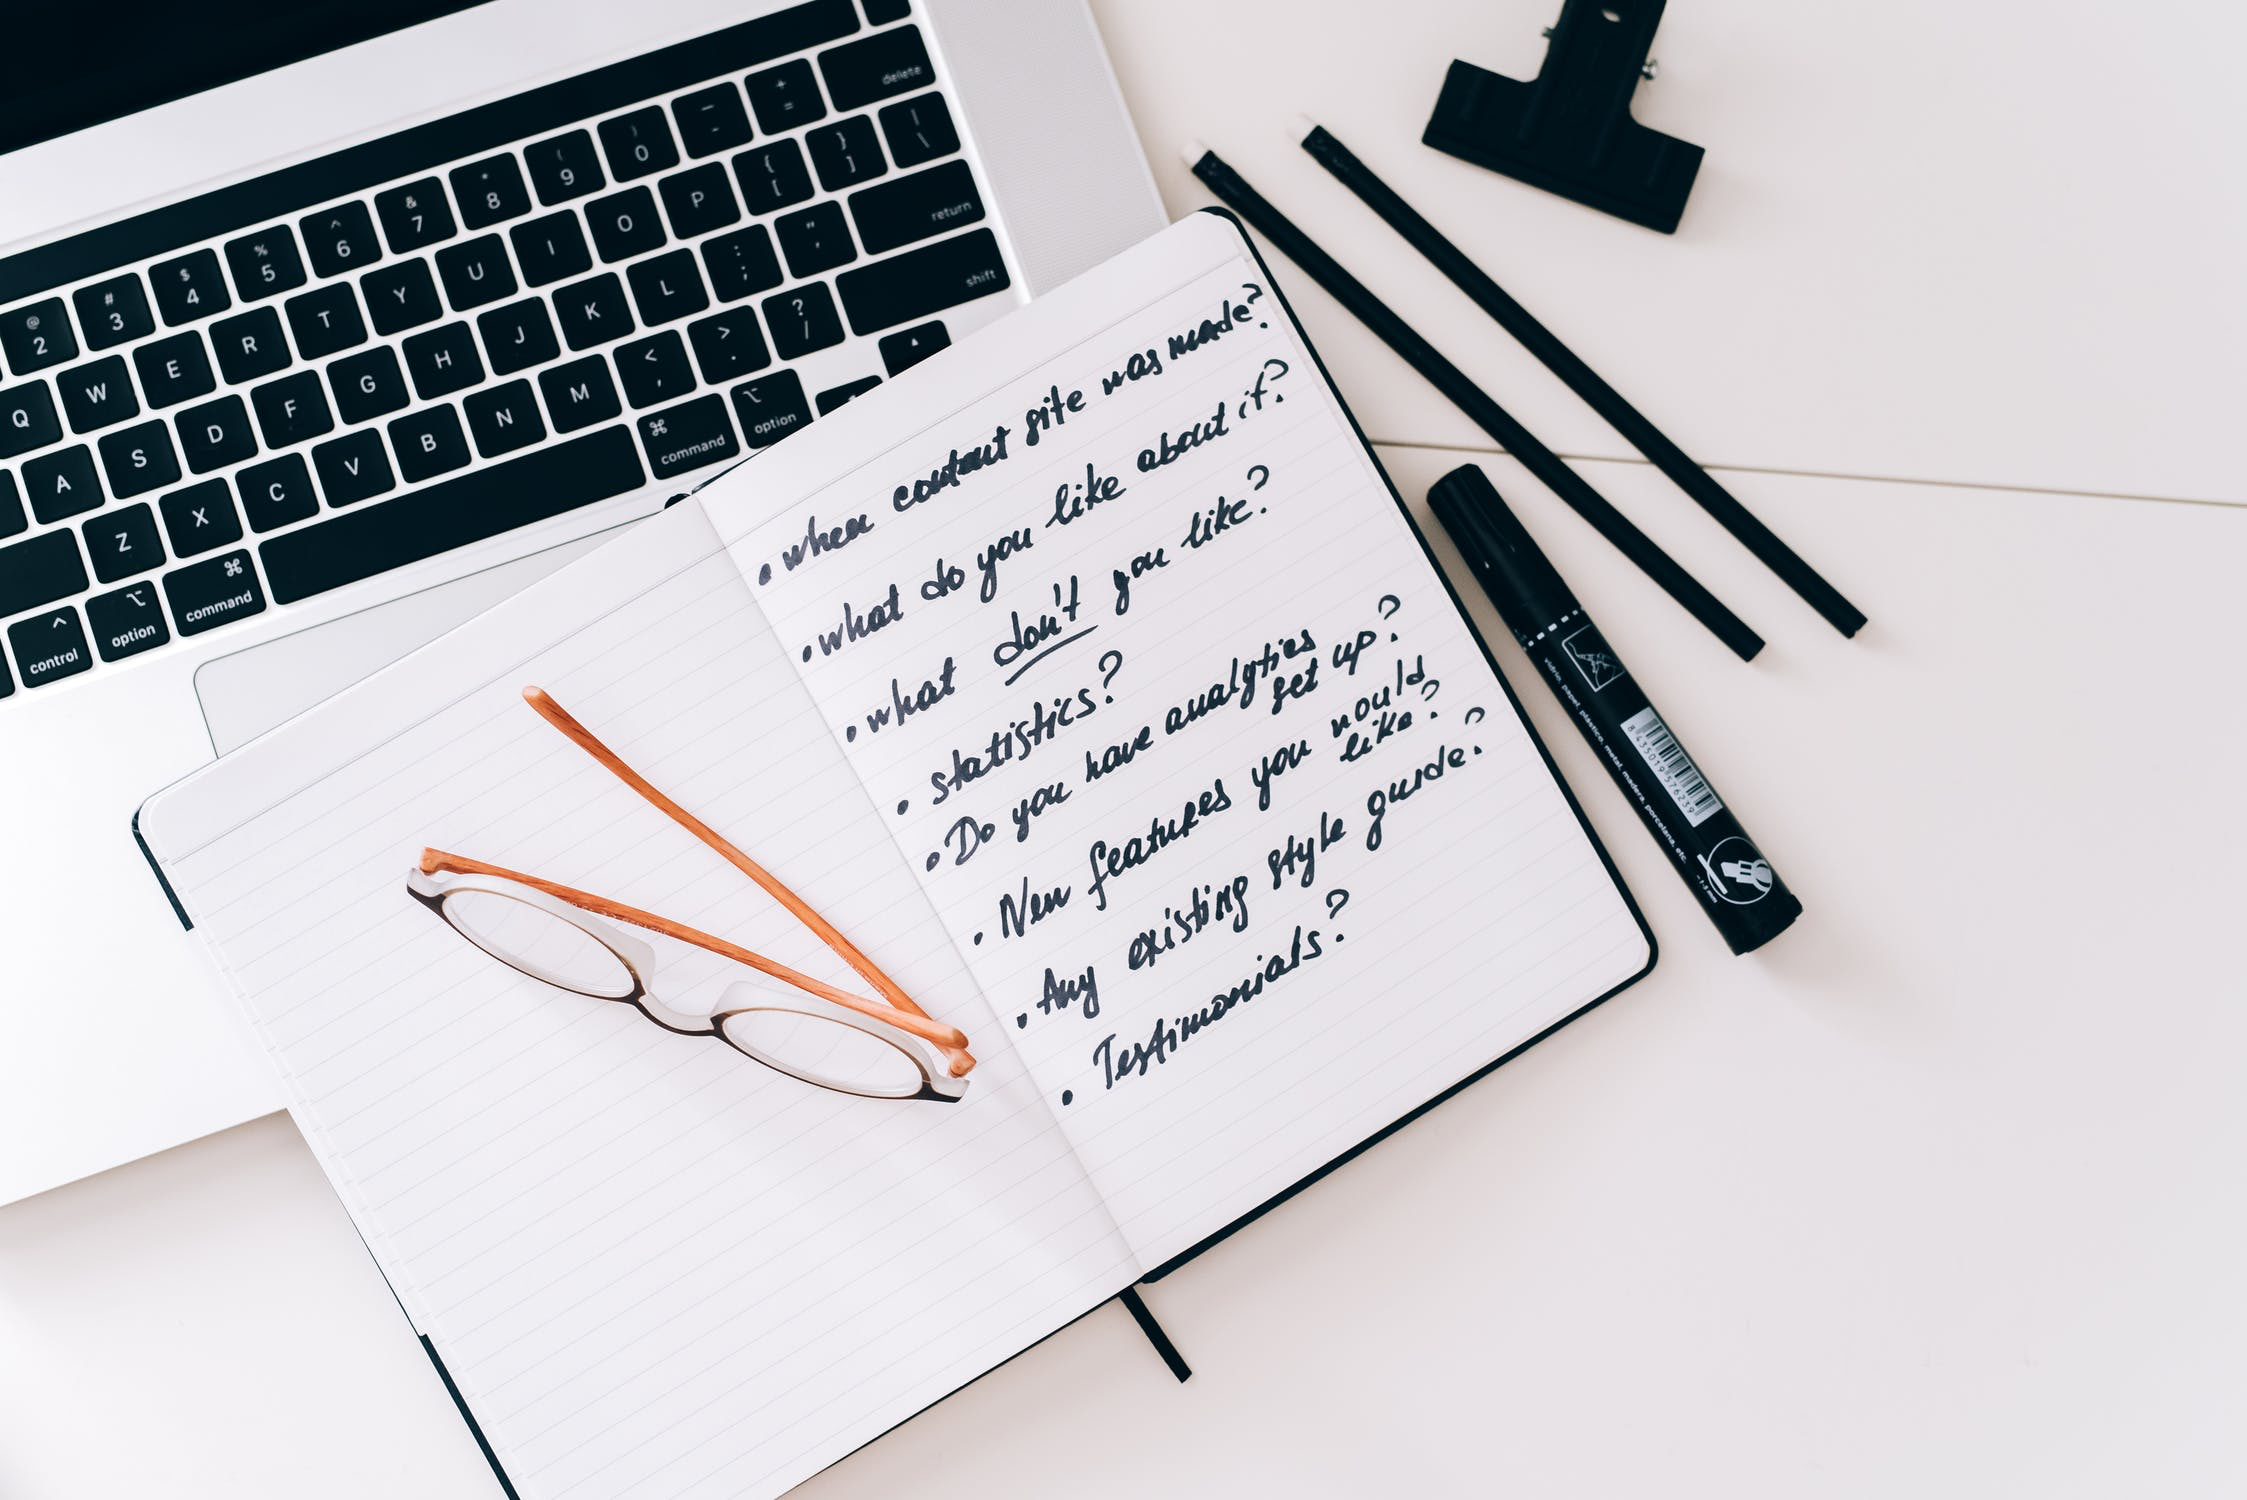 delete
@ # $ % ^ & * ( ) _ +
2 3 4 5 6 7 8 9 0 - =
Q W E R T Y U I O P { [ } ] | \
return
A S D F G H J K L : ; " '
shift
Z X C V B N M < , > . ? /
control
option
command
command
option
• when content site was made?
• what do you like about it?
• what don't you like?
• statistics?
• Do you have analytics
set up?
• New features you would
like?
• Any existing style guide?
• Testimonials?
vidrio, papel, plastico, metal, madera, porcelana, etc.
8 435019 576239